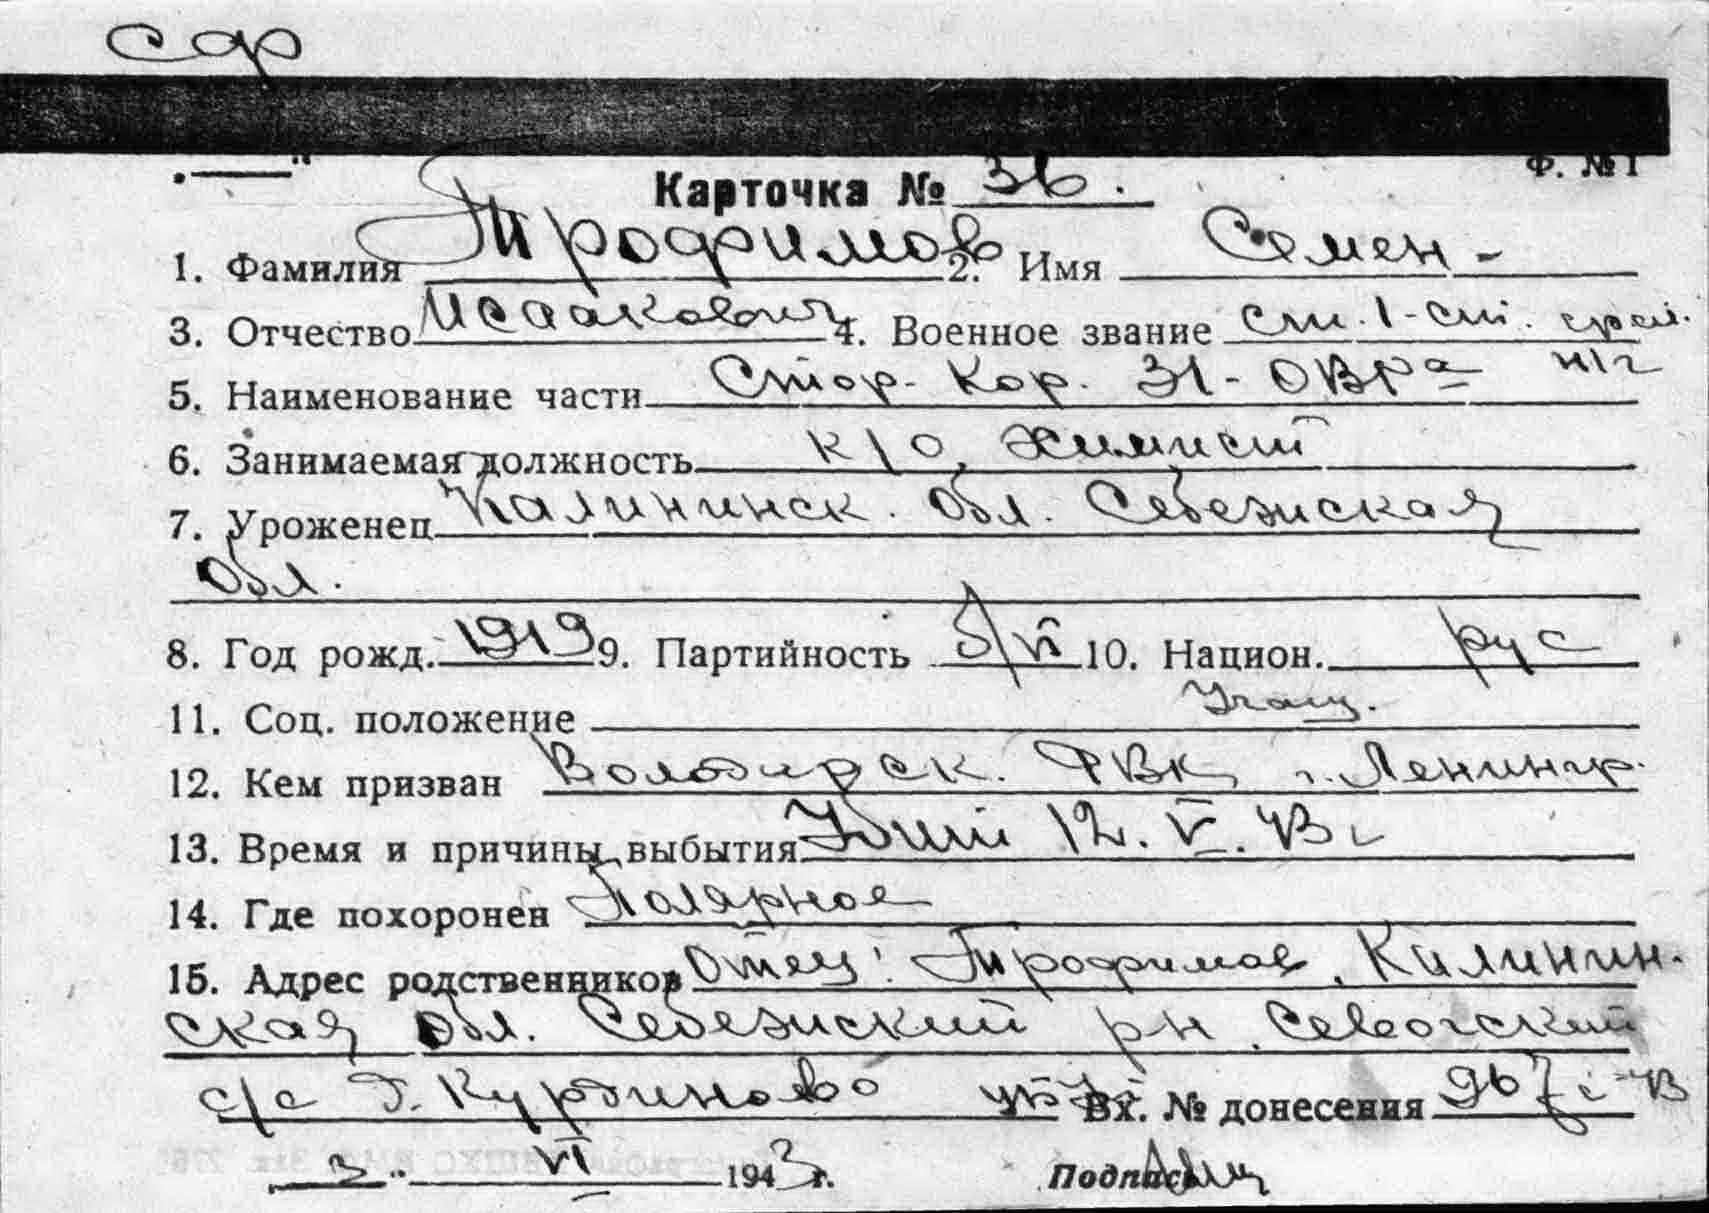 сф
Ф. № 1
Карточка № 36.
1. Фамилия Трофимов 2. Имя Семен -
3. Отчество Исаакович 4. Военное звание ст. 1-ст.
5. Наименование части Стор. Кор. 31 - ОВРа
6. Занимаемая должность к/о, химист
7. Уроженец Калининск. обл. Себежская
обл.
8. Год рожд. 1919 9. Партийность б/п 10. Национ. рус
11. Соц. положение Учащ.
12. Кем призван Володарск. РВК г. Ленингр.
13. Время и причины выбытия Убит 12. V. 43 г
14. Где похоронен Полярное
15. Адрес родственников Отец: Трофимов, Калинин-
ская обл. Себежский рн.
с/с д. Вх. № донесения 967с-43
" 3 " VI 1943 г. Подпись